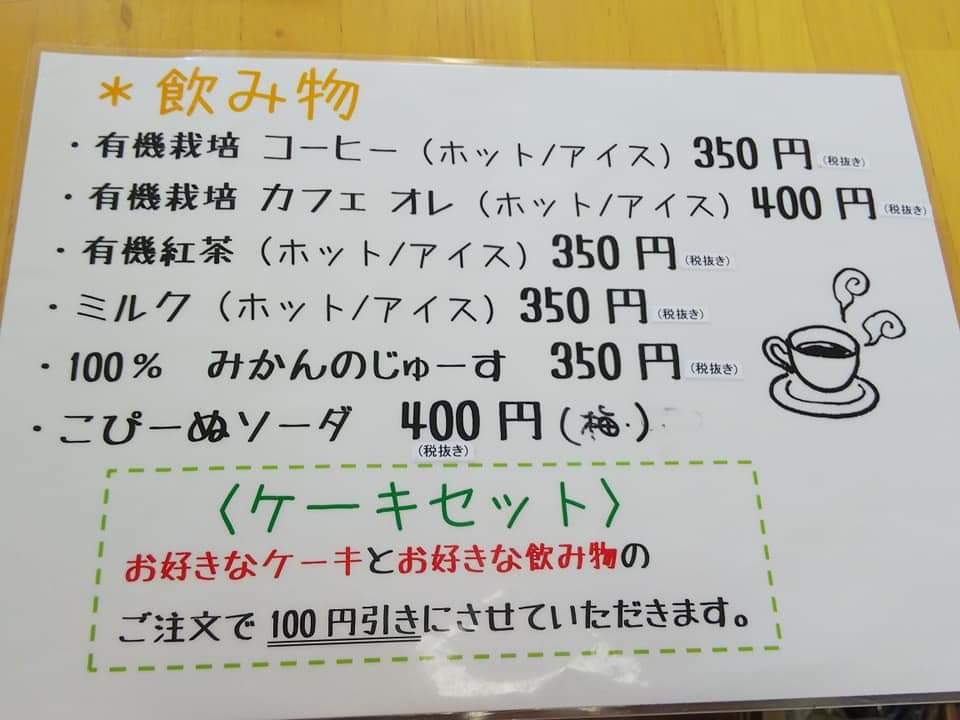 ＊飲み物
・有機栽培 コーヒー（ホット/アイス）350円（税抜き）
・有機栽培 カフェ オレ（ホット/アイス）400円（税抜き）
・有機紅茶（ホット/アイス）350円（税抜き）
・ミルク（ホット/アイス）350円（税抜き）
・100％ みかんのじゅーす 350円（税抜き）
・こぴーぬソーダ 400円（梅・）
（税抜き）
〈ケーキセット〉
お好きなケーキとお好きな飲み物の
ご注文で 100円引きにさせていただきます。